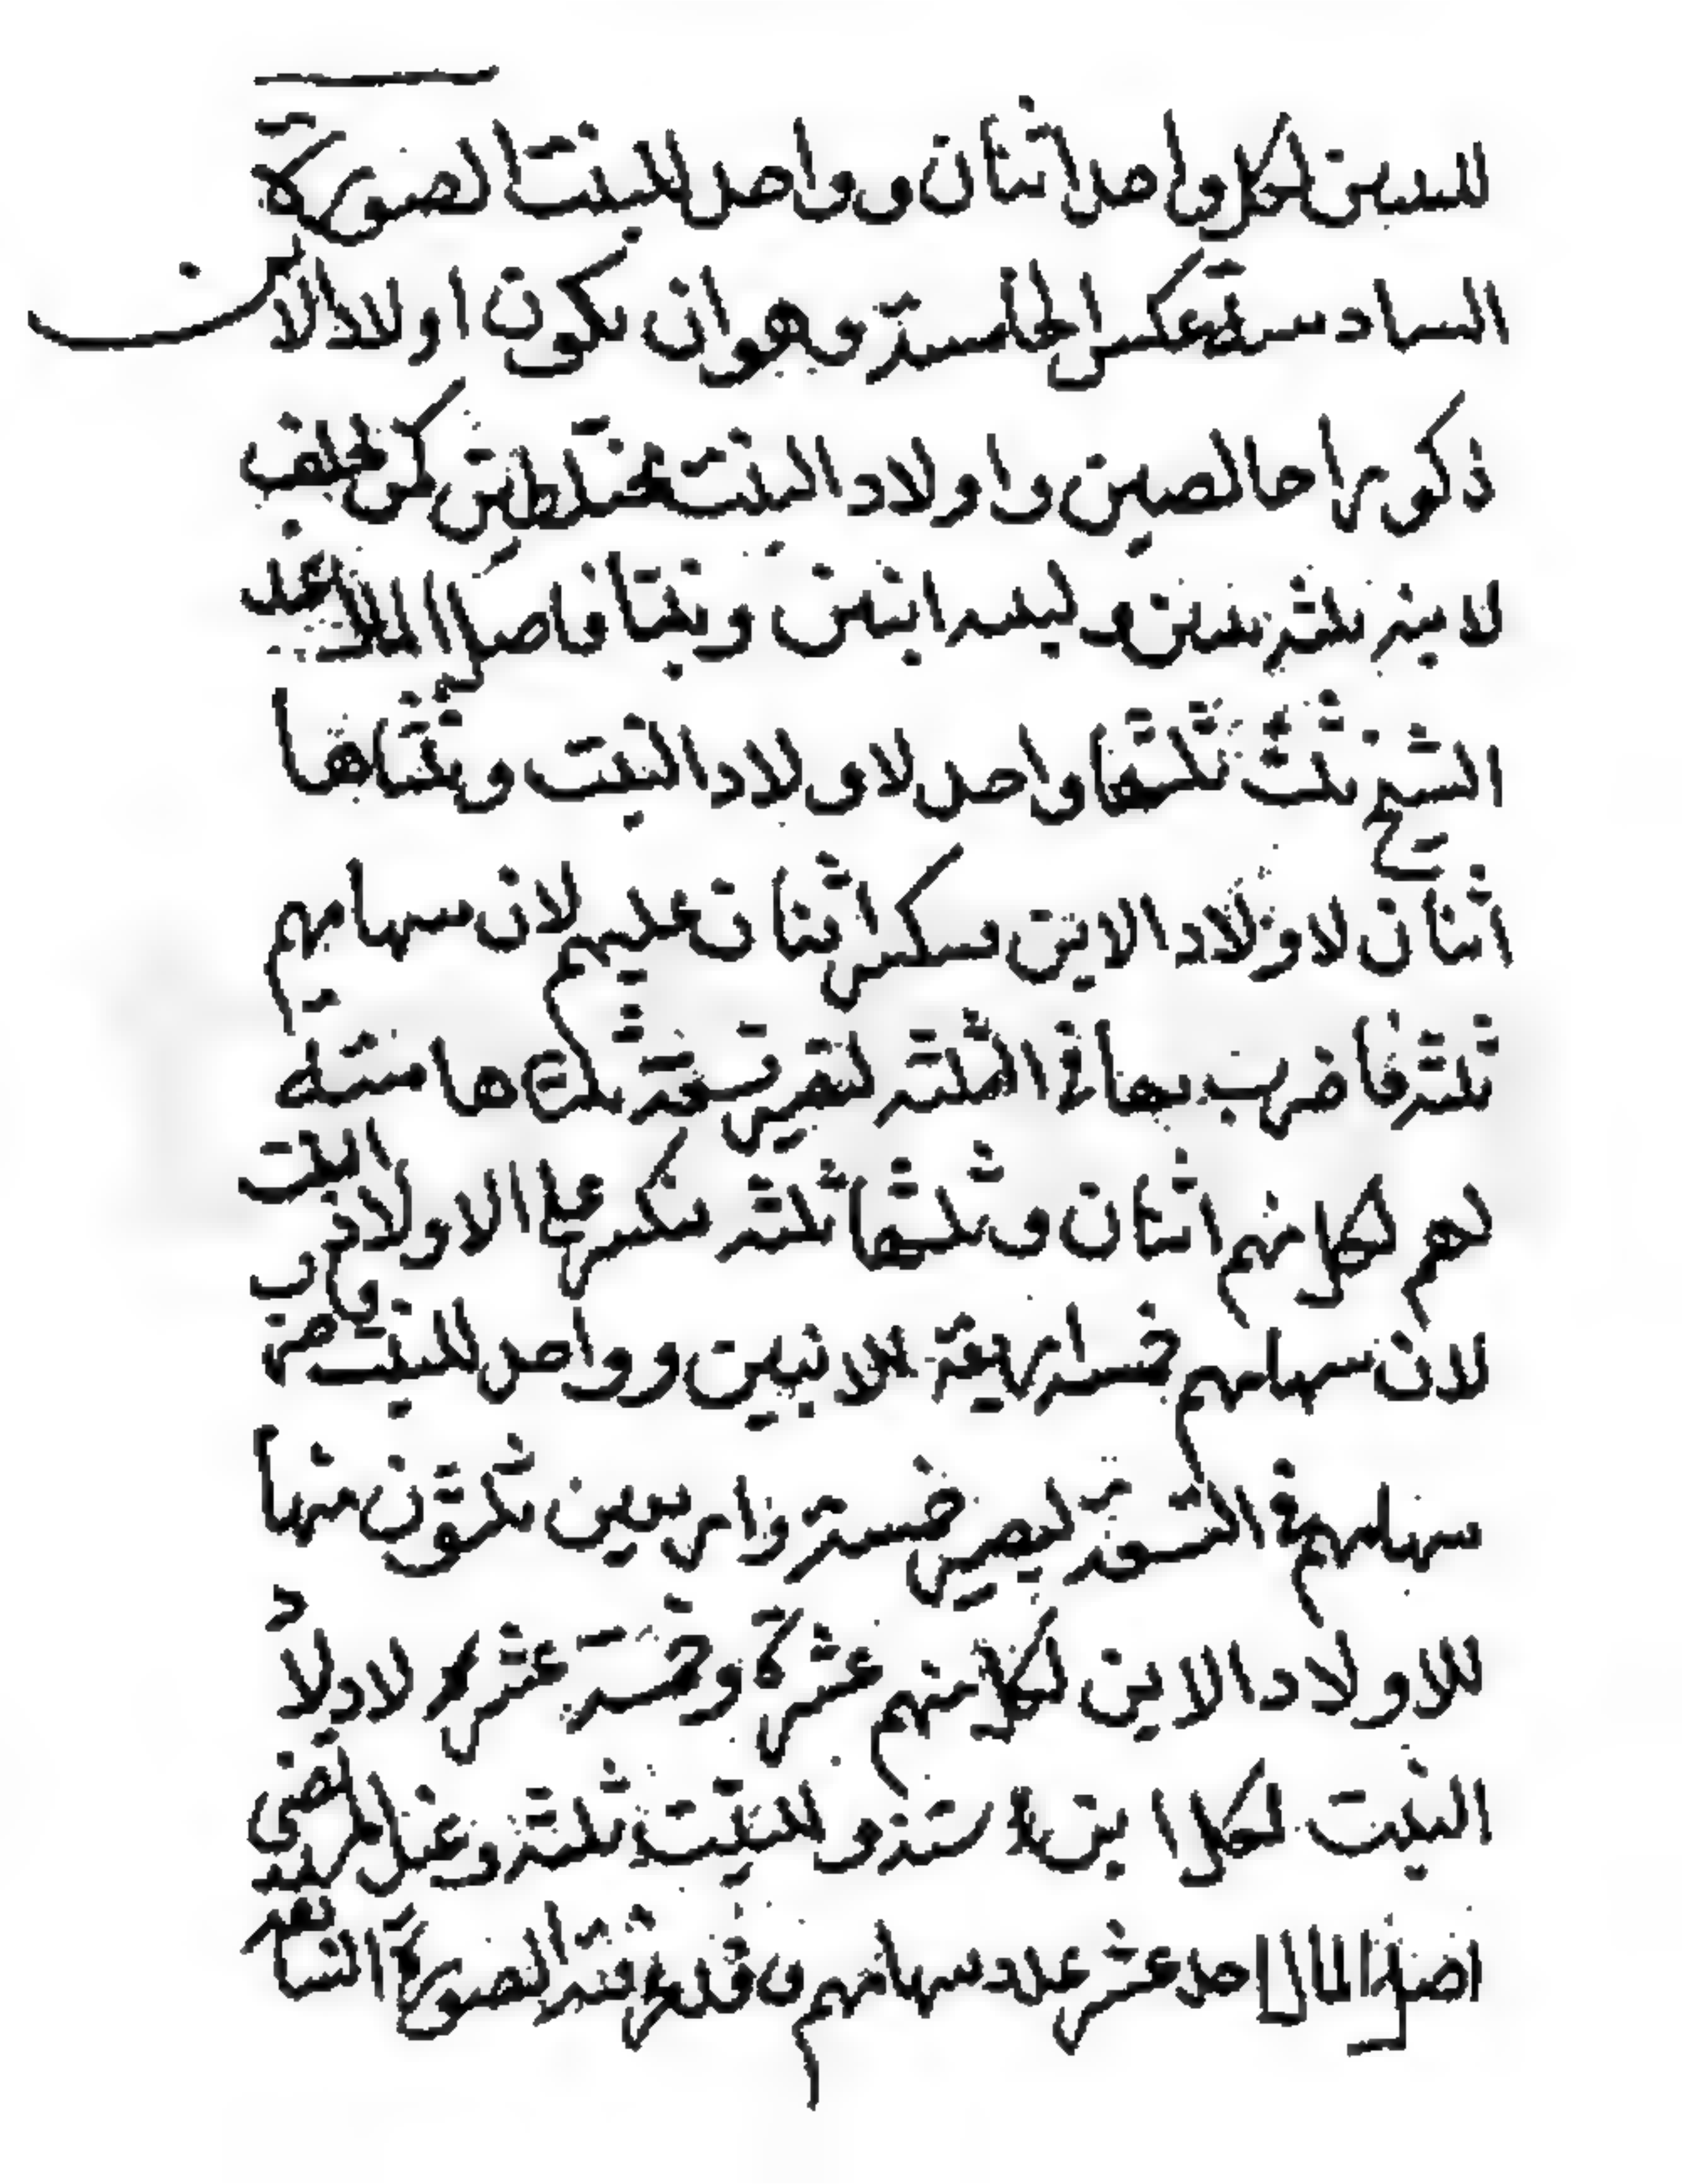 للبنين لكل واحد اثنان وواحد للبنت الصورة
السادسة عكس الخامسة وهو ان يكون اولاد الابن
ذكورا خالصين واولاد البنت مختلطين كمن خلف
لابنه ثلثة بنين ولبنته ابنين وبنتا فاصل المال عند
الشيخ ثلث ثلثها واحد لاولاد البنت وثلثاها
اثنان لاولاد الابن ينكسر اثنان عليهم لان سهامهم
ثلثة فاضرب بها في الثلثة لتصير تسعة ثلثاها ستة
لهم لكل منهم اثنان وثلثها ثلثة ينكسر على اولاد البنت
لان سهامهم خمسة اربعة للابنين وواحد للبنت فاضرب
سهامهم في التسعة ليصير خمسة واربعين يكون منها
للاولاد الابن لكل منهم عشرة وخمسة عشر لاولاد
البنت لكل ابن ستة وللبنت ثلثة وعند المرتضى
اصل المال احد عشر عدد سهامهم وقد عرفته الصورة السابعة